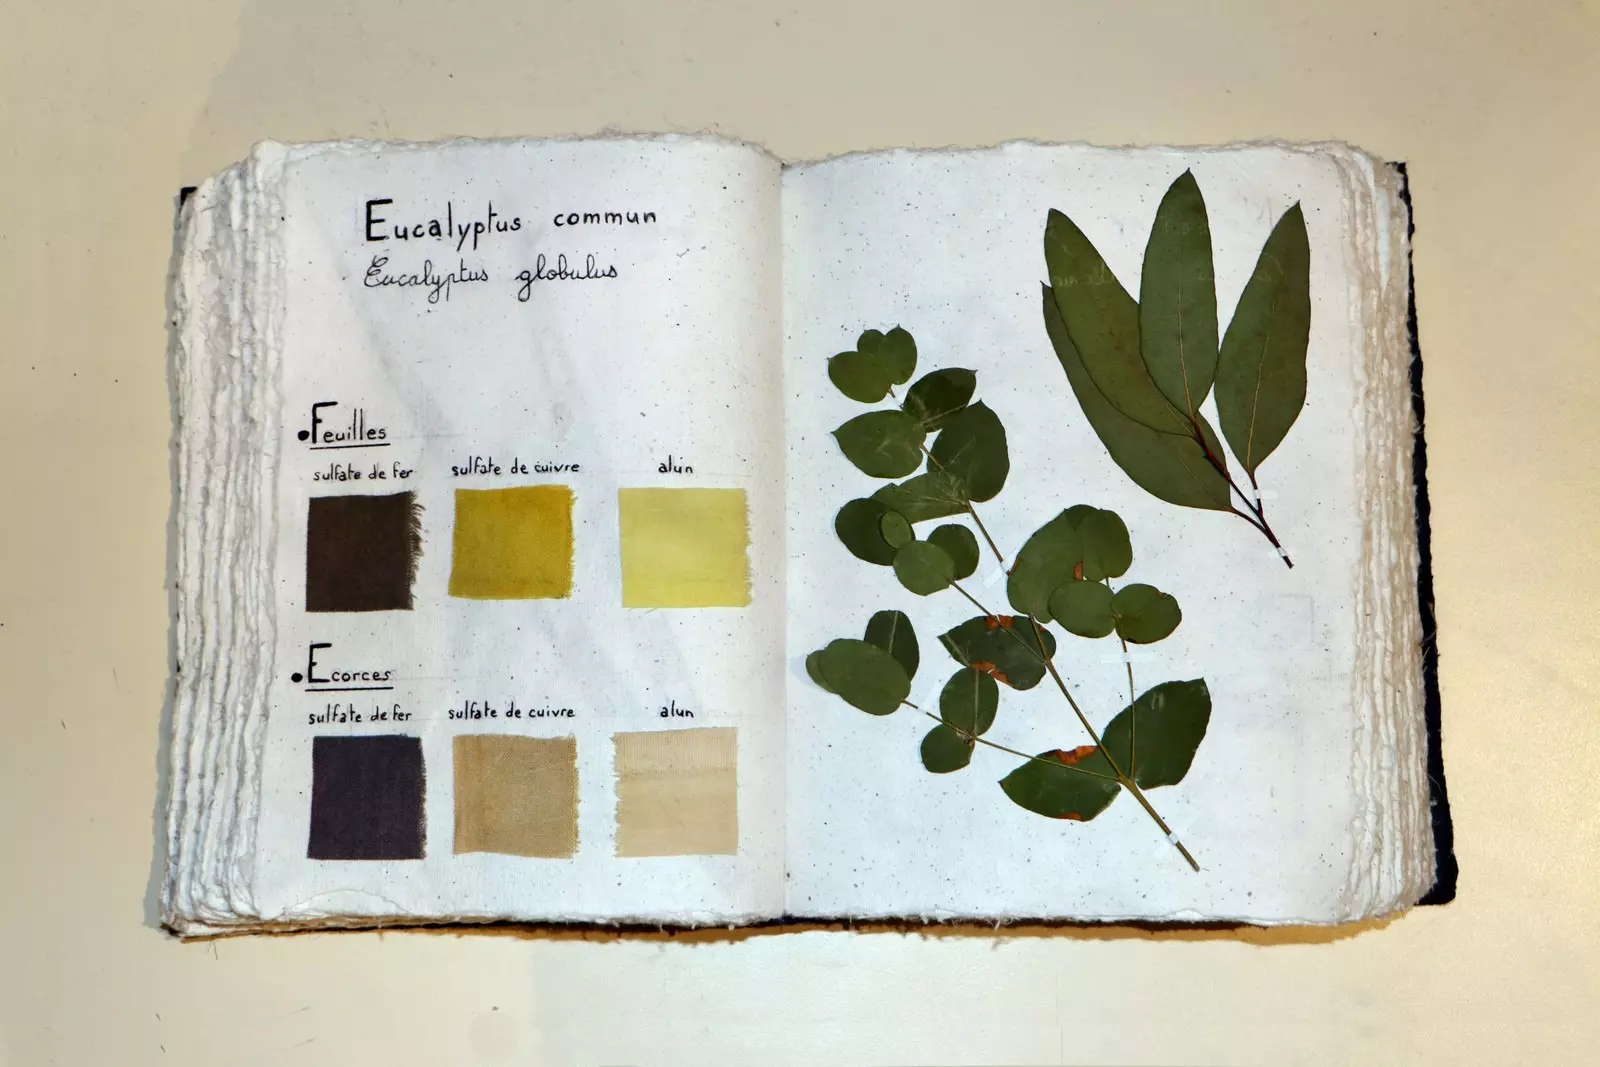 Eucalyptus commun
Eucalyptus globulus
•Feuilles
sulfate de fer sulfate de cuivre alun
•Ecorces
sulfate de fer sulfate de cuivre alun